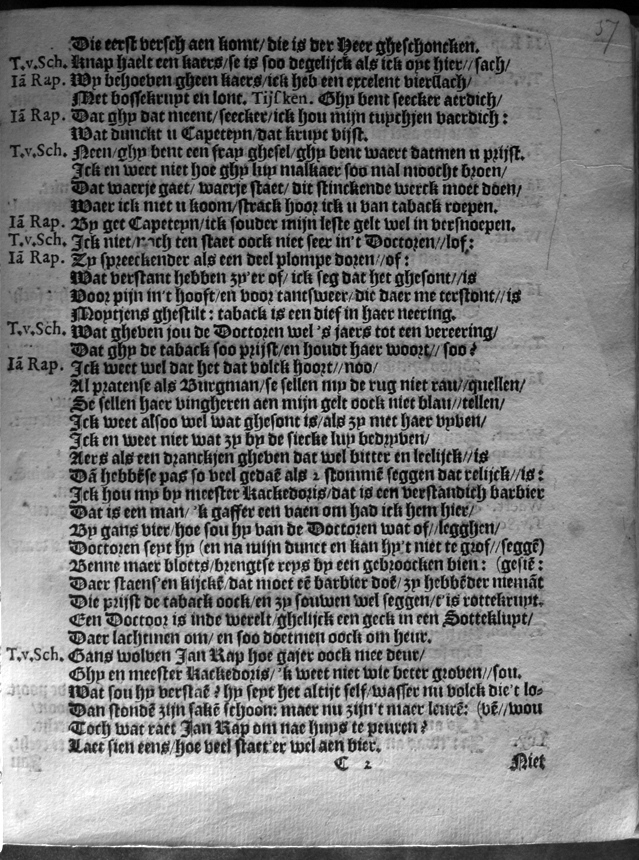 37
Die eerst versch aen komt/ die is der Heer gheschoncken.
T.v.Sch. Knap haelt een kaers/ se is soo degelijck als ick oyt hier//sach/
Iã Rap. Wy behoeven gheen kaers/ ick heb een excelent vierslach/
Met bossekruyt en lont. Tijsken. Ghy bent seecker aerdich/
Iã Rap. Dat ghy dat meent/ seecker/ ick hou mijn tuychjen vaerdich:
Wat dunckt u Capeteyn/ dat kruyt vijst.
T.v.Sch. Neen/ ghy bent een fray ghesel/ ghy bent waert datmen u prijst.
Ick en weet niet hoe ghy luy malkaer soo mal moocht broen/
Dat waerje gaet/ waerje staet/ dit stinckende werck moet doen/
Waer ick niet u koom/ strack hoor ick u van taback roepen.
Iã Rap. By get Capeteyn/ ick souder mijn leste gelt wel in versnoepen.
T.v.Sch. Ick niet/ noch ten staet oock niet seer in't Doctoren//lof:
Iã Rap. Zy spreeckender als een deel plompe doren//of:
Wat verstant hebben zy'er of/ ick seg dat het ghesont//is
Voor pijn in't hooft/ en voor tantsweer/ die daer me terstont//is
Moytjens ghestilt: taback is een dief in haer neering.
T.v.Sch. Wat gheven jou de Doctoren wel 's jaers tot een vereering/
Dat ghy de taback soo prijst/ en houdt haer woort//soo?
Iã Rap. Ick weet wel dat het dat volck hoort//noo/
Al pratense als Burgman/ se sellen my de rug niet rau//quellen/
Se sellen haer vingheren aen mijn gelt oock niet blau//tellen/
Ick weet alsoo wel wat ghesont is/ als zy met haer vyven/
Ick en weet niet wat zy by de siecke luy bedryven/
Aers als een dranckjen gheven dat wel bitter en leelijck//is
Dã hebbēse pas so veel gedaē als 2 stommē seggen dat relijck//is:
Ick hou my by meester Kackedoris/ dat is een verstandich barbier
Dat is een man/ 'k gaffer een vaen om had ick hem hier/
By gans vier/ hoe sou hy van de Doctoren wat of//legghen/
Doctoren seyt hy (en na mijn dunct en kan hy't niet te grof//seggē)
Benne maer bloets/ brengtse reys by een gebroocken bien: (gesiē:
Daer staens'en kijckē/ dat moet eē barbier doē/ zy hebbēder niemāt
Die prijst de taback oock/ en zy souwen wel seggen/ t'is rottekruyt.
Een Doctoor is inde werelt/ ghelijck een geck in een Sotteklupt/
Daer lachtmen om/ en soo doetmen oock om heur.
T.v.Sch. Gans wolven Jan Rap hoe gajer oock mee deur/
Ghy en meester Kackedoris/ 'k weet niet wie beter groven//sou.
Wat sou hy verstaē? hy seyt het altijt self/ wasser nu volck die't lo-
Dan stondē zijn sakē schoon: maer nu zijn't maer leurē: (vē//wou
Toch wat raet Jan Rap om nae huys te peuren?
Laet sien eens/ hoe veel staet'er wel aen bier.
C 2 Niet